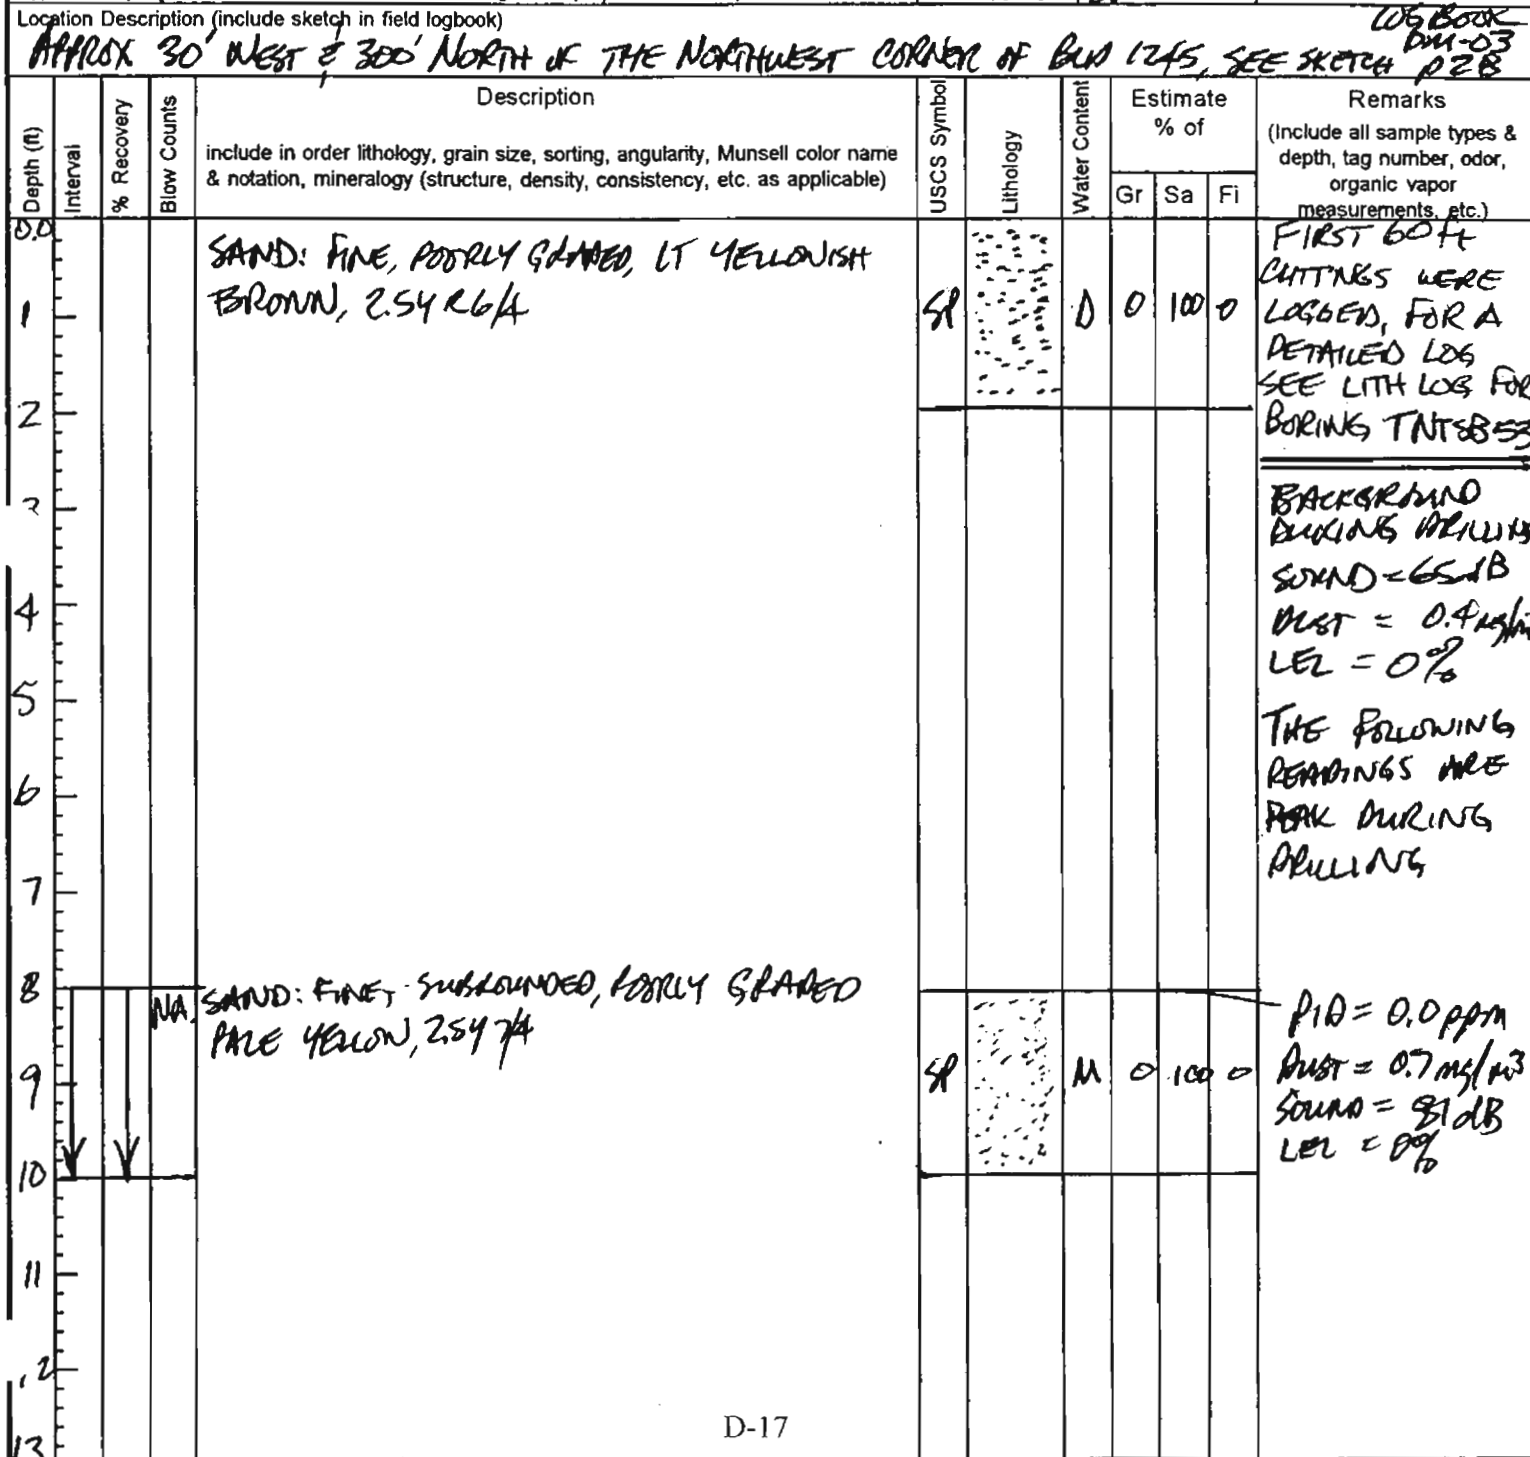 Location Description (include sketch in field logbook)
LOG BOOK
DM-03
APPROX 30' WEST & 300' NORTH OF THE NORTHWEST CORNER OF BLD 1245, SEE SKETCH p28
Depth (ft)
Interval
% Recovery
Blow Counts
Description
include in order lithology, grain size, sorting, angularity, Munsell color name
& notation, mineralogy (structure, density, consistency, etc. as applicable)
USCS Symbol
Lithology
Water Content
Estimate
% of
Gr Sa Fi
Remarks
(Include all sample types &
depth, tag number, odor,
organic vapor
measurements, etc.)
0.0
SAND: FINE, POORLY GRADED, LT YELLOWISH
BROWN, 2.5YR6/4
SP D 0 100 0
FIRST 60 ft
CUTTINGS WERE
LOGGED, FOR A
DETAILED LOG
SEE LITH LOG FOR
BORING TNTSB53
1
2
3
BACKGROUND
DURING DRILLING
SOUND = 65 dB
DUST = 0.4 mg/m
LEL = 0%
4
5
THE FOLLOWING
READINGS ARE
PEAK DURING
DRILLING
6
7
8
NA
SAND: FINE, SUBROUNDED, POORLY GRADED
PALE YELLOW, 2.5Y 7/4
SP M 0 100 0
PID = 0.0 ppm
DUST = 0.7 mg/m3
SOUND = 81 dB
LEL = 0%
9
10
11
12
13
D-17